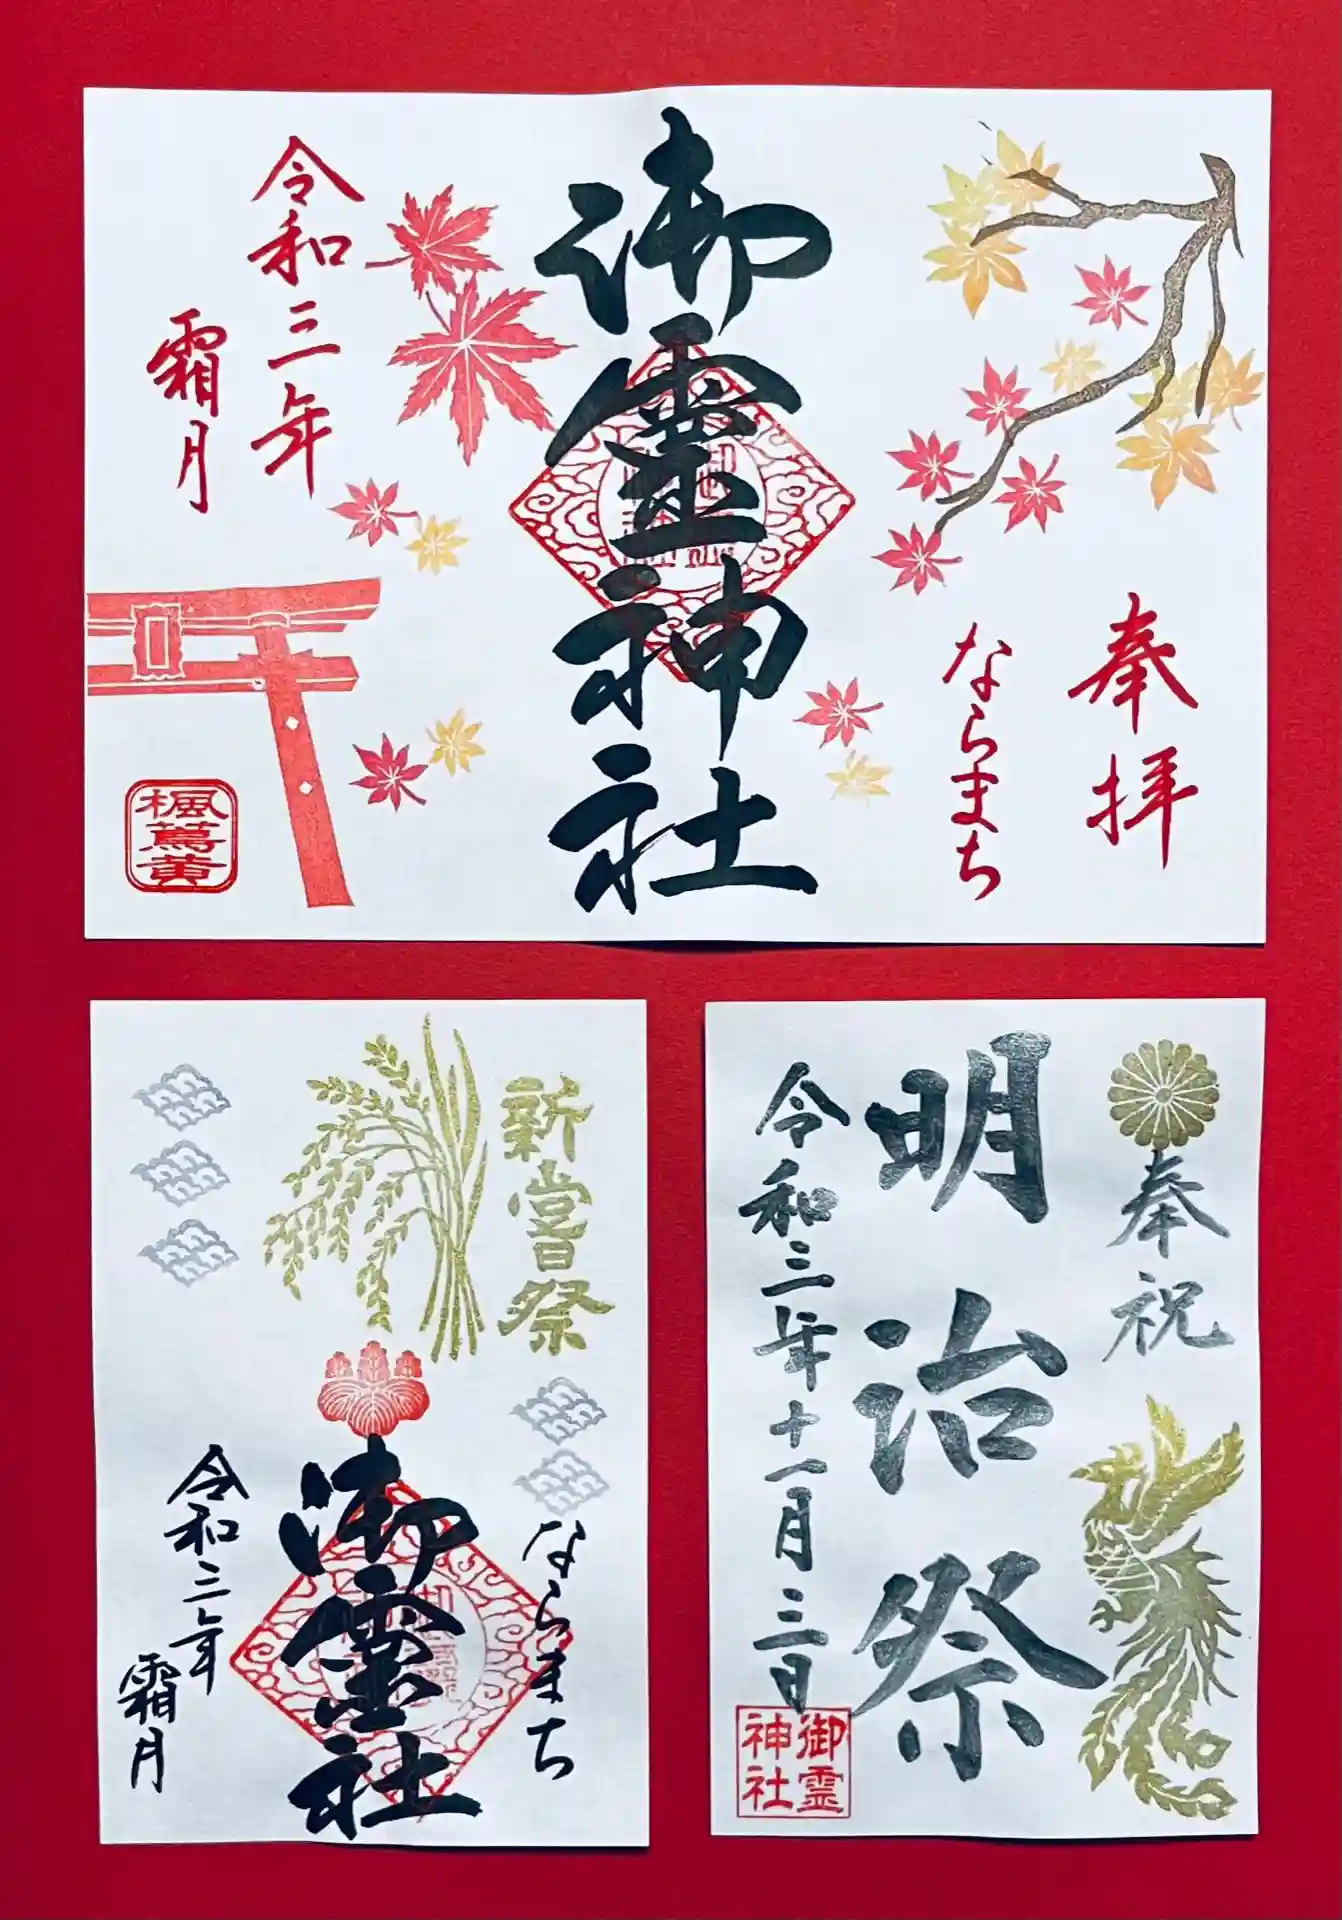 奉拝
ならまち
御霊神社
令和三年
霜月
楓蔦黄
新嘗祭
ならまち
御霊社
令和三年
霜月
奉祝
明治祭
令和三年十一月三日
御霊
神社